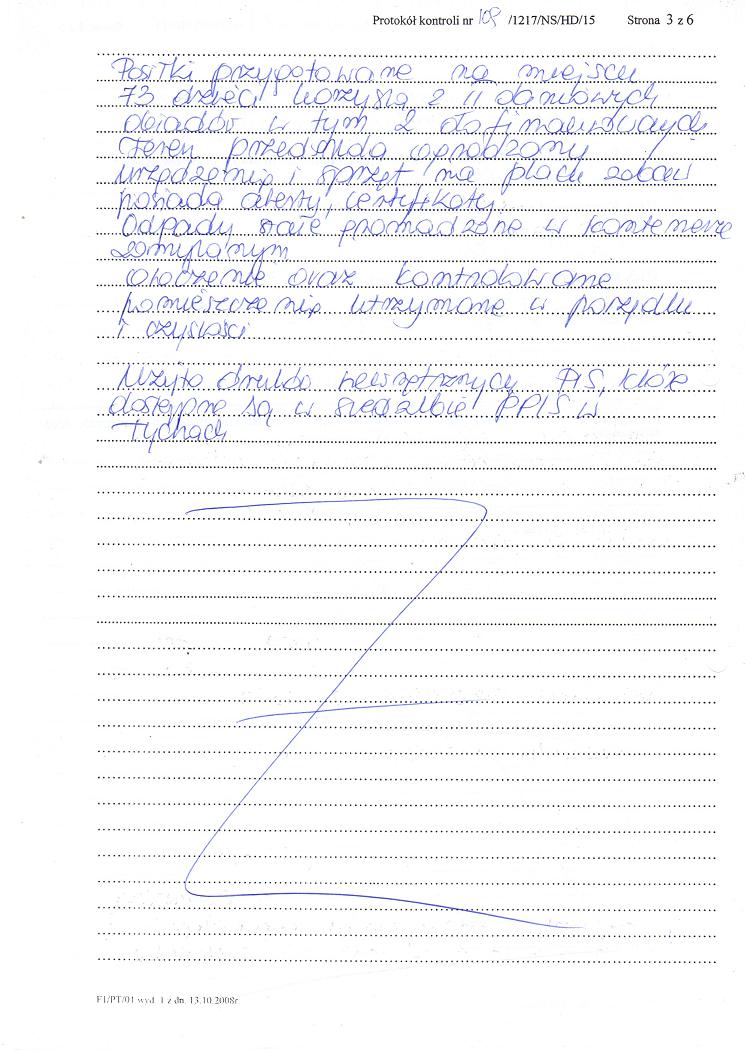 Protokół kontroli nr 109 /1217/NS/HD/15 Strona 3 z 6
Posiłki przygotowane na miejscu
73 dzieci korzysta z II daniowych
obiadów w tym 2 dofinansowanych
Teren przedszkola ogrodzony
urządzenia i sprzęt na placu zabaw
posiada atesty, certyfikaty.
Odpady stałe gromadzone w kontenerze
zamykanym
Otoczenie oraz kontrolowane
pomieszczenia utrzymane w porządku
i czystości
Użyto druków wewnętrznych PIS, które
dostępne są w siedzibie PPIS w
Tychach
F1/PT/01 wyd. 1 z dn. 13.10.2008r